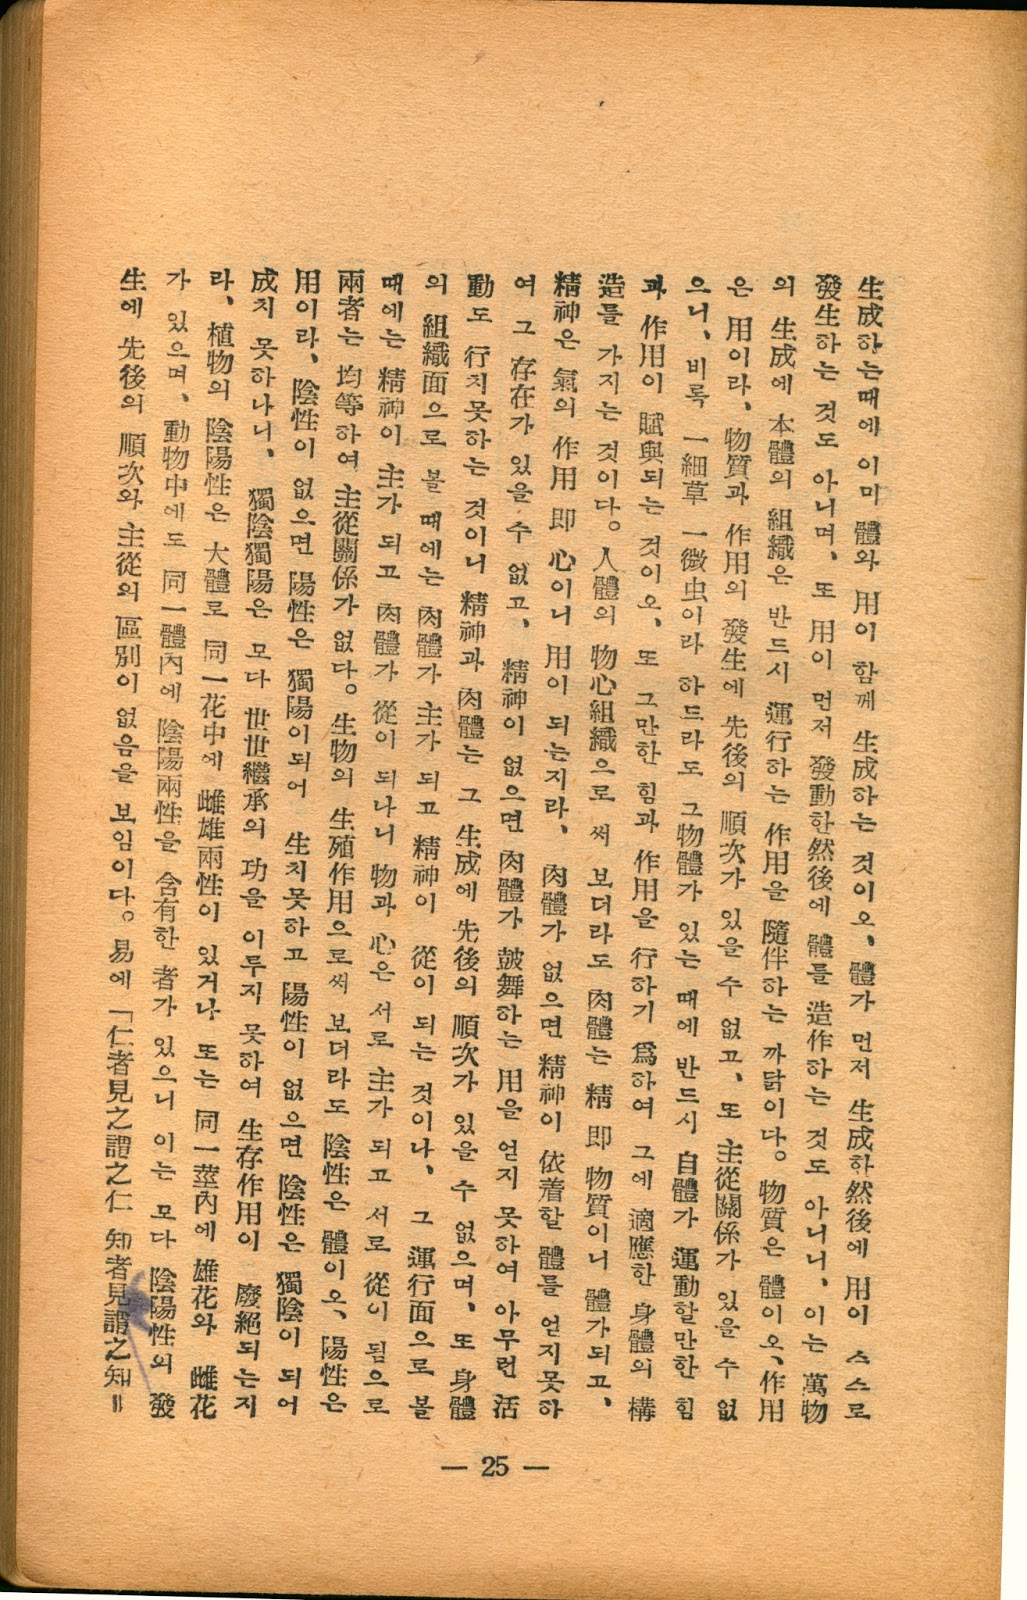 生成하는때에 이미 體와 用이 함께 生成하는 것이오、體가 먼저 生成한然後에 用이 스스로
發生하는 것도 아니며、또 用이 먼저 發動한然後에 體를 造作하는 것도 아니니、이는 萬物
의 生成에 本體의 組織은 반드시 運行하는 作用을 隨伴하는 까닭이다。物質은 體이오、作用
은 用이라、物質과 作用의 發生에 先後의 順次가 있을 수 없고、또 主從關係가 있을 수 없
으니、비록 一細草 一微虫이라 하드라도 그物體가 있는 때에 반드시 自體가 運動할만한 힘
과 作用이 賦與되는 것이오、또 그만한 힘과 作用을 行하기 爲하여 그에 適應한 身體의 構
造를 가지는 것이다。人體의 物心組織으로 써 보더라도 肉體는 精 即 物質이니 體가되고、
精神은 氣의 作用 即 心이니 用이 되는지라、肉體가 없으면 精神이 依着할 體를 얻지못하
여 그 存在가 있을 수 없고、精神이 없으면 肉體가 鼓舞하는 用을 얻지 못하여 아무런 活
動도 行치못하는 것이니 精神과 肉體는 그 生成에 先後의 順次가 있을 수 없으며、또 身體
의 組織面으로 볼 때에는 肉體가 主가 되고 精神이 從이 되는 것이나、그 運行面으로 볼
때에는 精神이 主가 되고 肉體가 從이 되나니 物과 心은 서로 主가 되고 서로 從이 됨으로
兩者는 均等하여 主從關係가 없다。生物의 生殖作用으로써 보더라도 陰性은 體이오、陽性은
用이라、陰性이 없으면 陽性은 獨陽이되어 生치못하고 陽性이 없으면 陰性은 獨陰이 되어
成치 못하나니、獨陰獨陽은 모다 世世繼承의 功을 이루지 못하여 生存作用이 廢絕되는지
라、植物의 陰陽性은 大體로 同一花中에 雌雄兩性이 있거나 또는 同一莖內에 雄花와 雌花
가 있으며、動物中에도 同一體內에 陰陽兩性을 含有한 者가 있으니 이는 모다 陰陽性의 發
生에 先後의 順次와 主從의 區別이 없음을 보임이다。易에「仁者見之謂之仁 知者見謂之知=
— 25 —